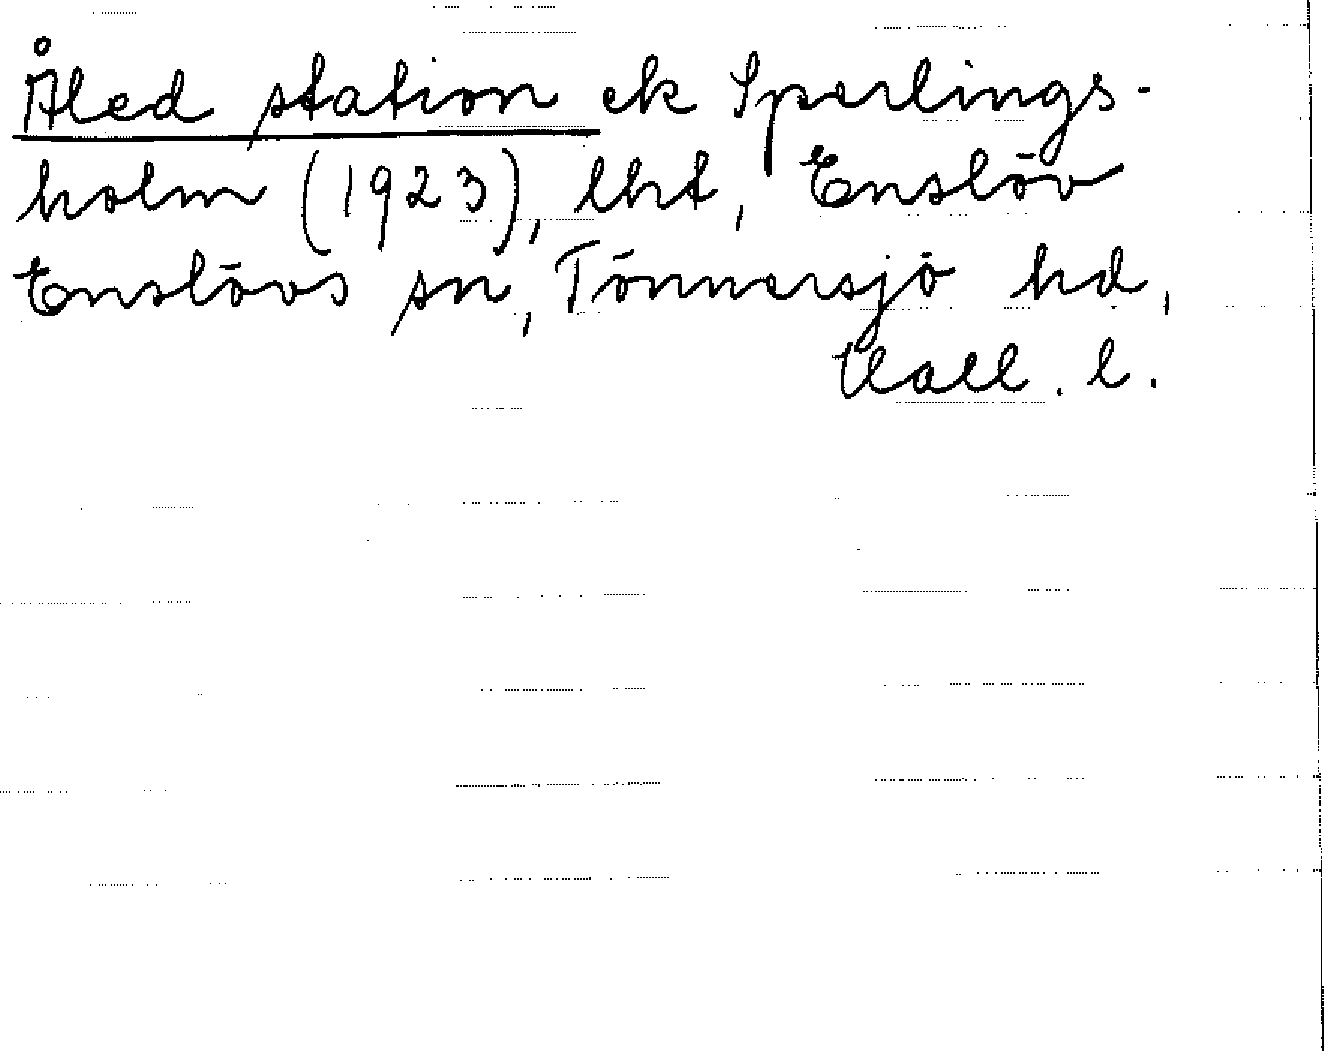 Åled station ek Sperlings-
holm (1923), lht, Enslöv
Enslövs sn, Tönnersjö hd,
Hall. l.